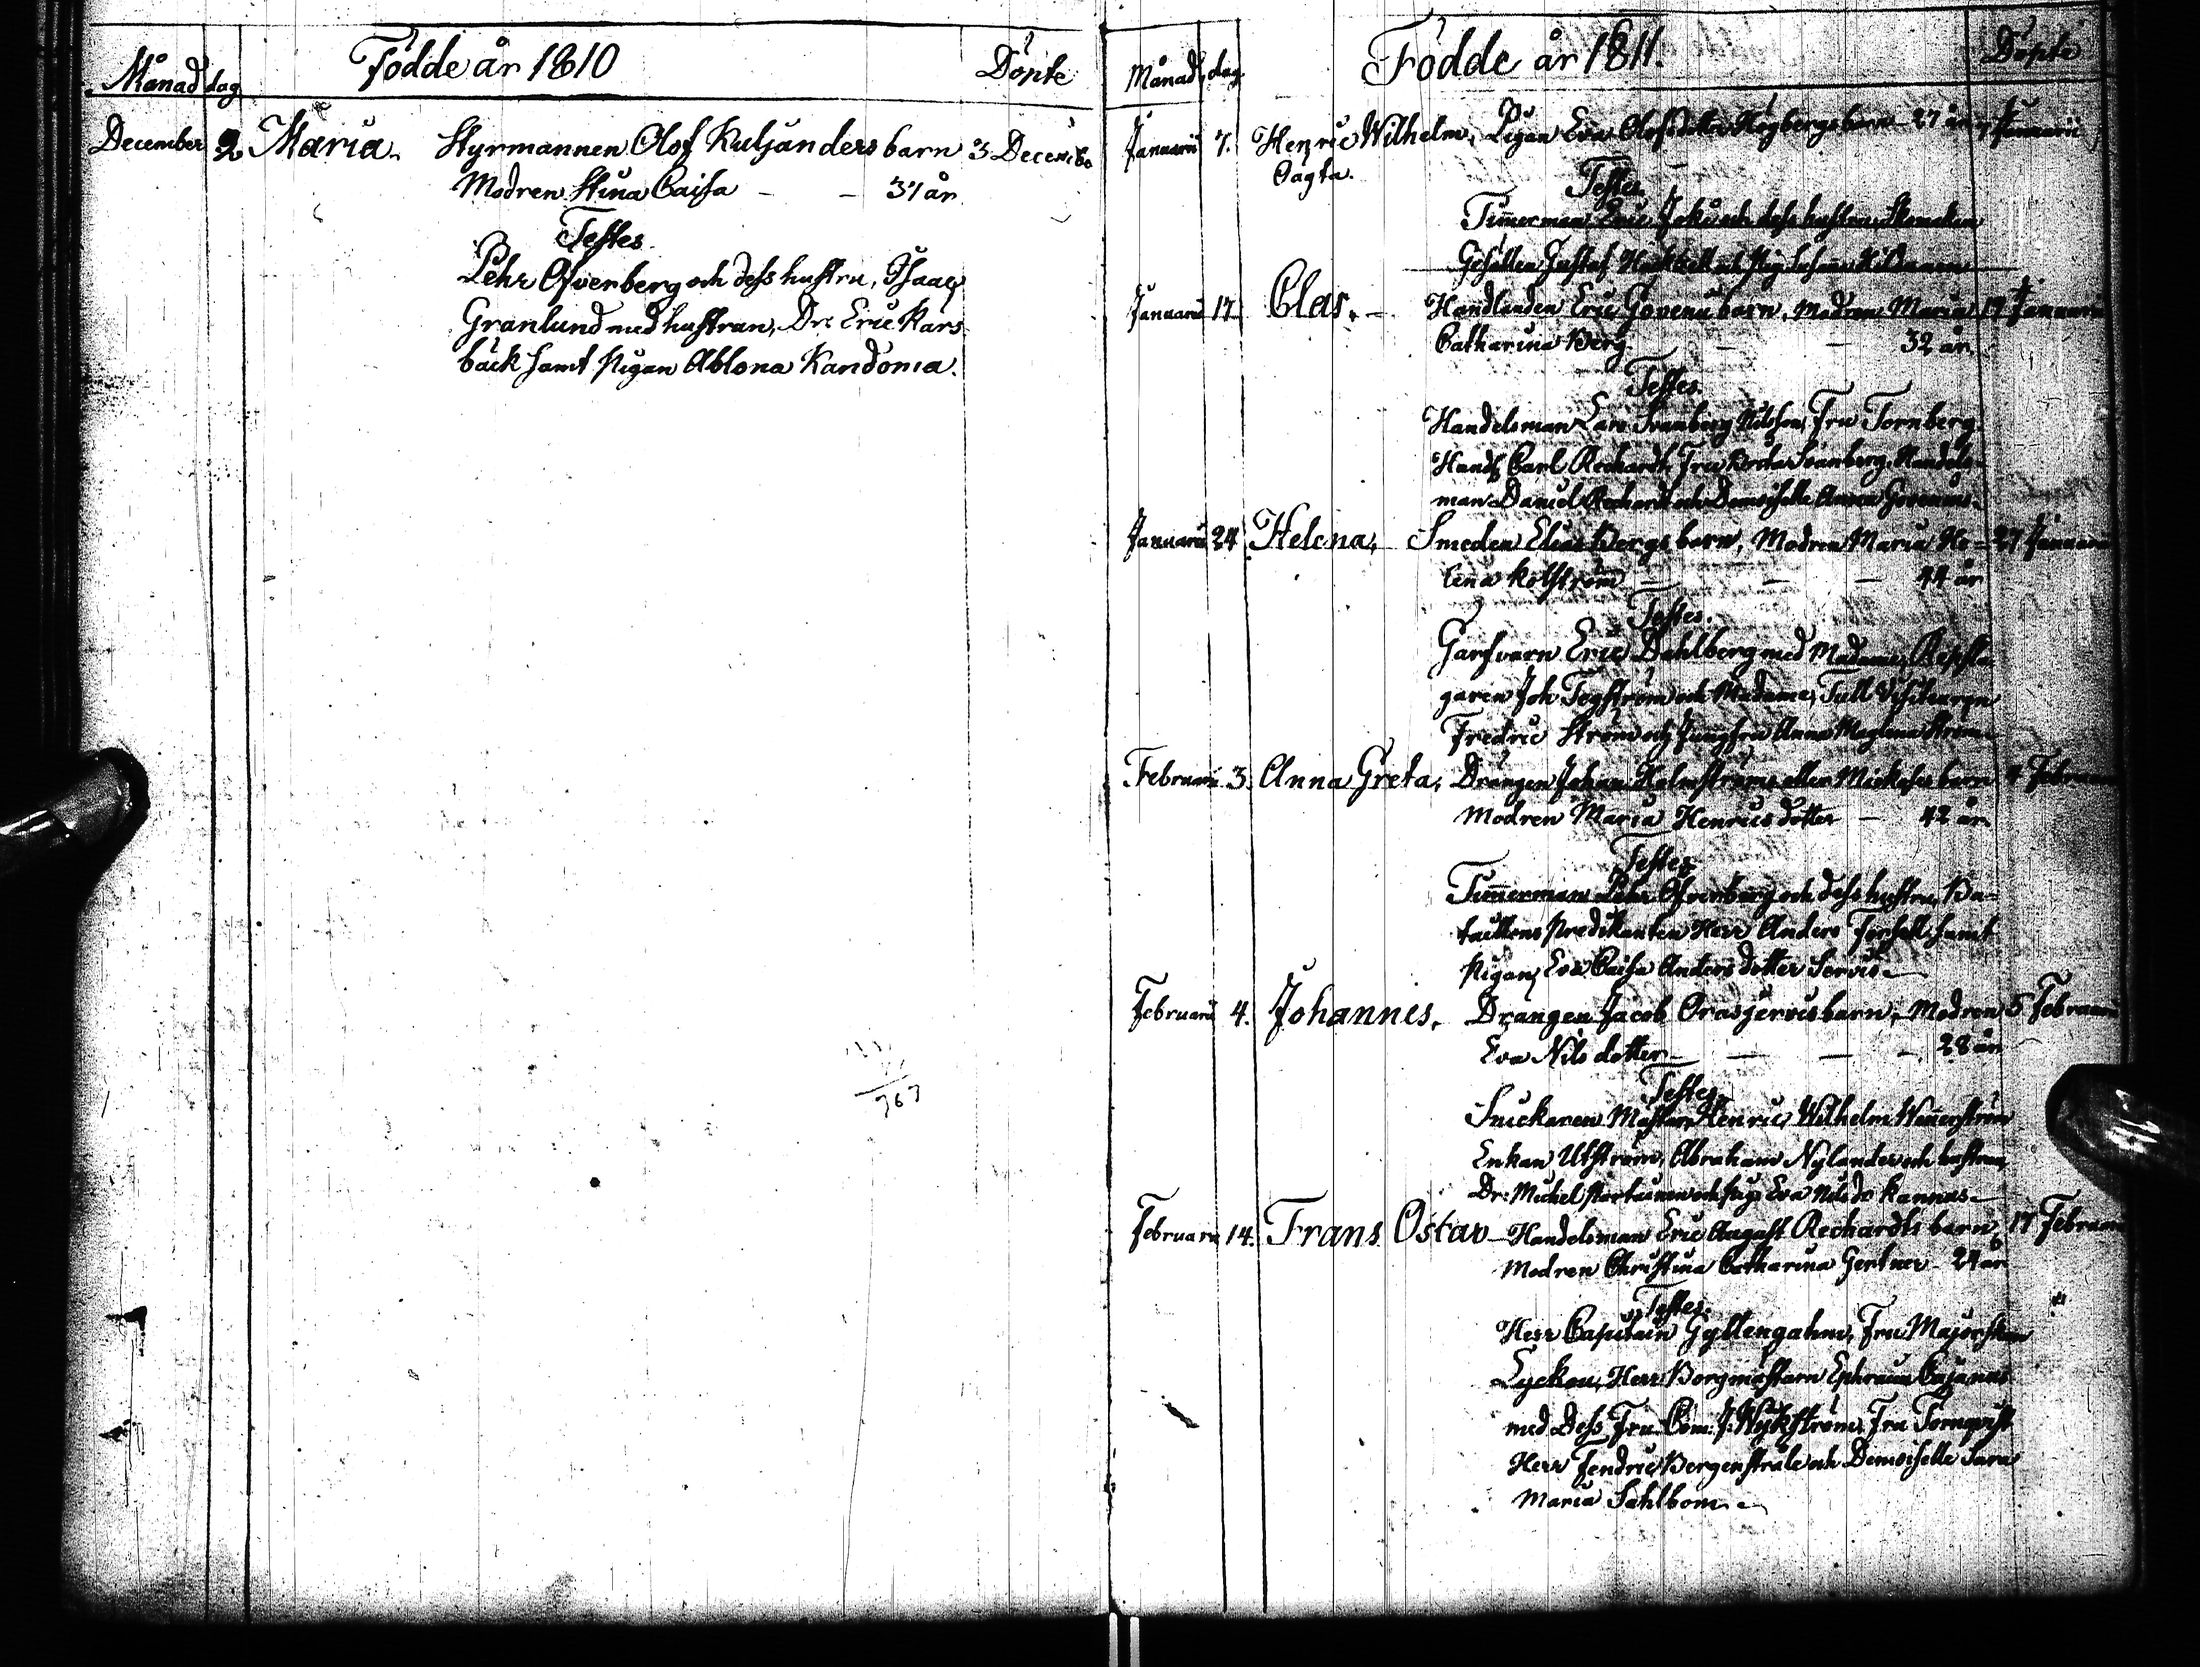 Månad dag Födde år 1810 Döpte
December 2 Maria. Styrmannen Olof Kuljanders barn 3 Decembr
Modren Stina Caisa — — 37 år
Testes
Pehr Ofverberg och dess hustru, Isaac
Granlund med hustrun, Dr: Eric Kars
bäck samt pigan Ablona Kandonia.
767
Månad dag Födde år 1811. Döpte
Januarii 7. Henric Wilhelm, Pigan Eva Olofsdotter Högbergs barn 27 år 7 Januarii
Oägta.
Testes
Timmerman Eric och dess hustru,
Gesällen Gustaf
Januarii 17 Clas. — Handlanden Eric Govenii barn, Modren Maria 19 Januarii
Catharina Berg — — 32 år
Testes
Handelsman Lars Svanberg Nilsson, Fru Tornberg
Handl Carl Rechardt, Fru Svanberg, Handels-
man Daniel Rechardt och Demoiselle Anna Govenius
Januarii 24 Helena, Smeden Elias Bergs barn, Modren Maria He- 27 Januarii
lena — — 44 år
Testes.
Garfvarn Eric Dahlberg med Madame, Repsla
garen Joh och Madame, Tull
Fredric Ström och Jungfru Anna Maglena Ström
Februarii 3. Anna Greta, Drängen Johan Holmströms eller barn Februarii
Modren Maria Henricsdotter — 42 år
Testes
Timmerman Pehr Ofverberg och dess hustru, Ba-
taillons predikanten Herr Anders Forsell samt
Pigan Eva Caisa Andersdotter
Februarii 4. Johannes. Drängen Jacob barn, Modren 5 Februarii
Eva Nilsdotter — — — 28 år
Testes
Snickaren Mästarn Henric Wilhelm Wennerström
Enkan Utström, Abraham Nylander och hustrun,
Dr: Michel och pig: Eva Nilsdr Kannus
Februarii 14. Frans Ostav — Handelsman Eric August Rechardts barn 17 Februarii
Modren Christina Catharina Gertner — 24 år
Testes.
Herr Capitain Gyllengahm, Fru Majorskan
Lyckou, Herr Borgmästarn Ephraim Cajanus
med Dess Fru Com: J. Nykström, Fru Tornqvist
Herr Fendric Bergenstråle och Demoiselle Sara
Maria Sahlbom.